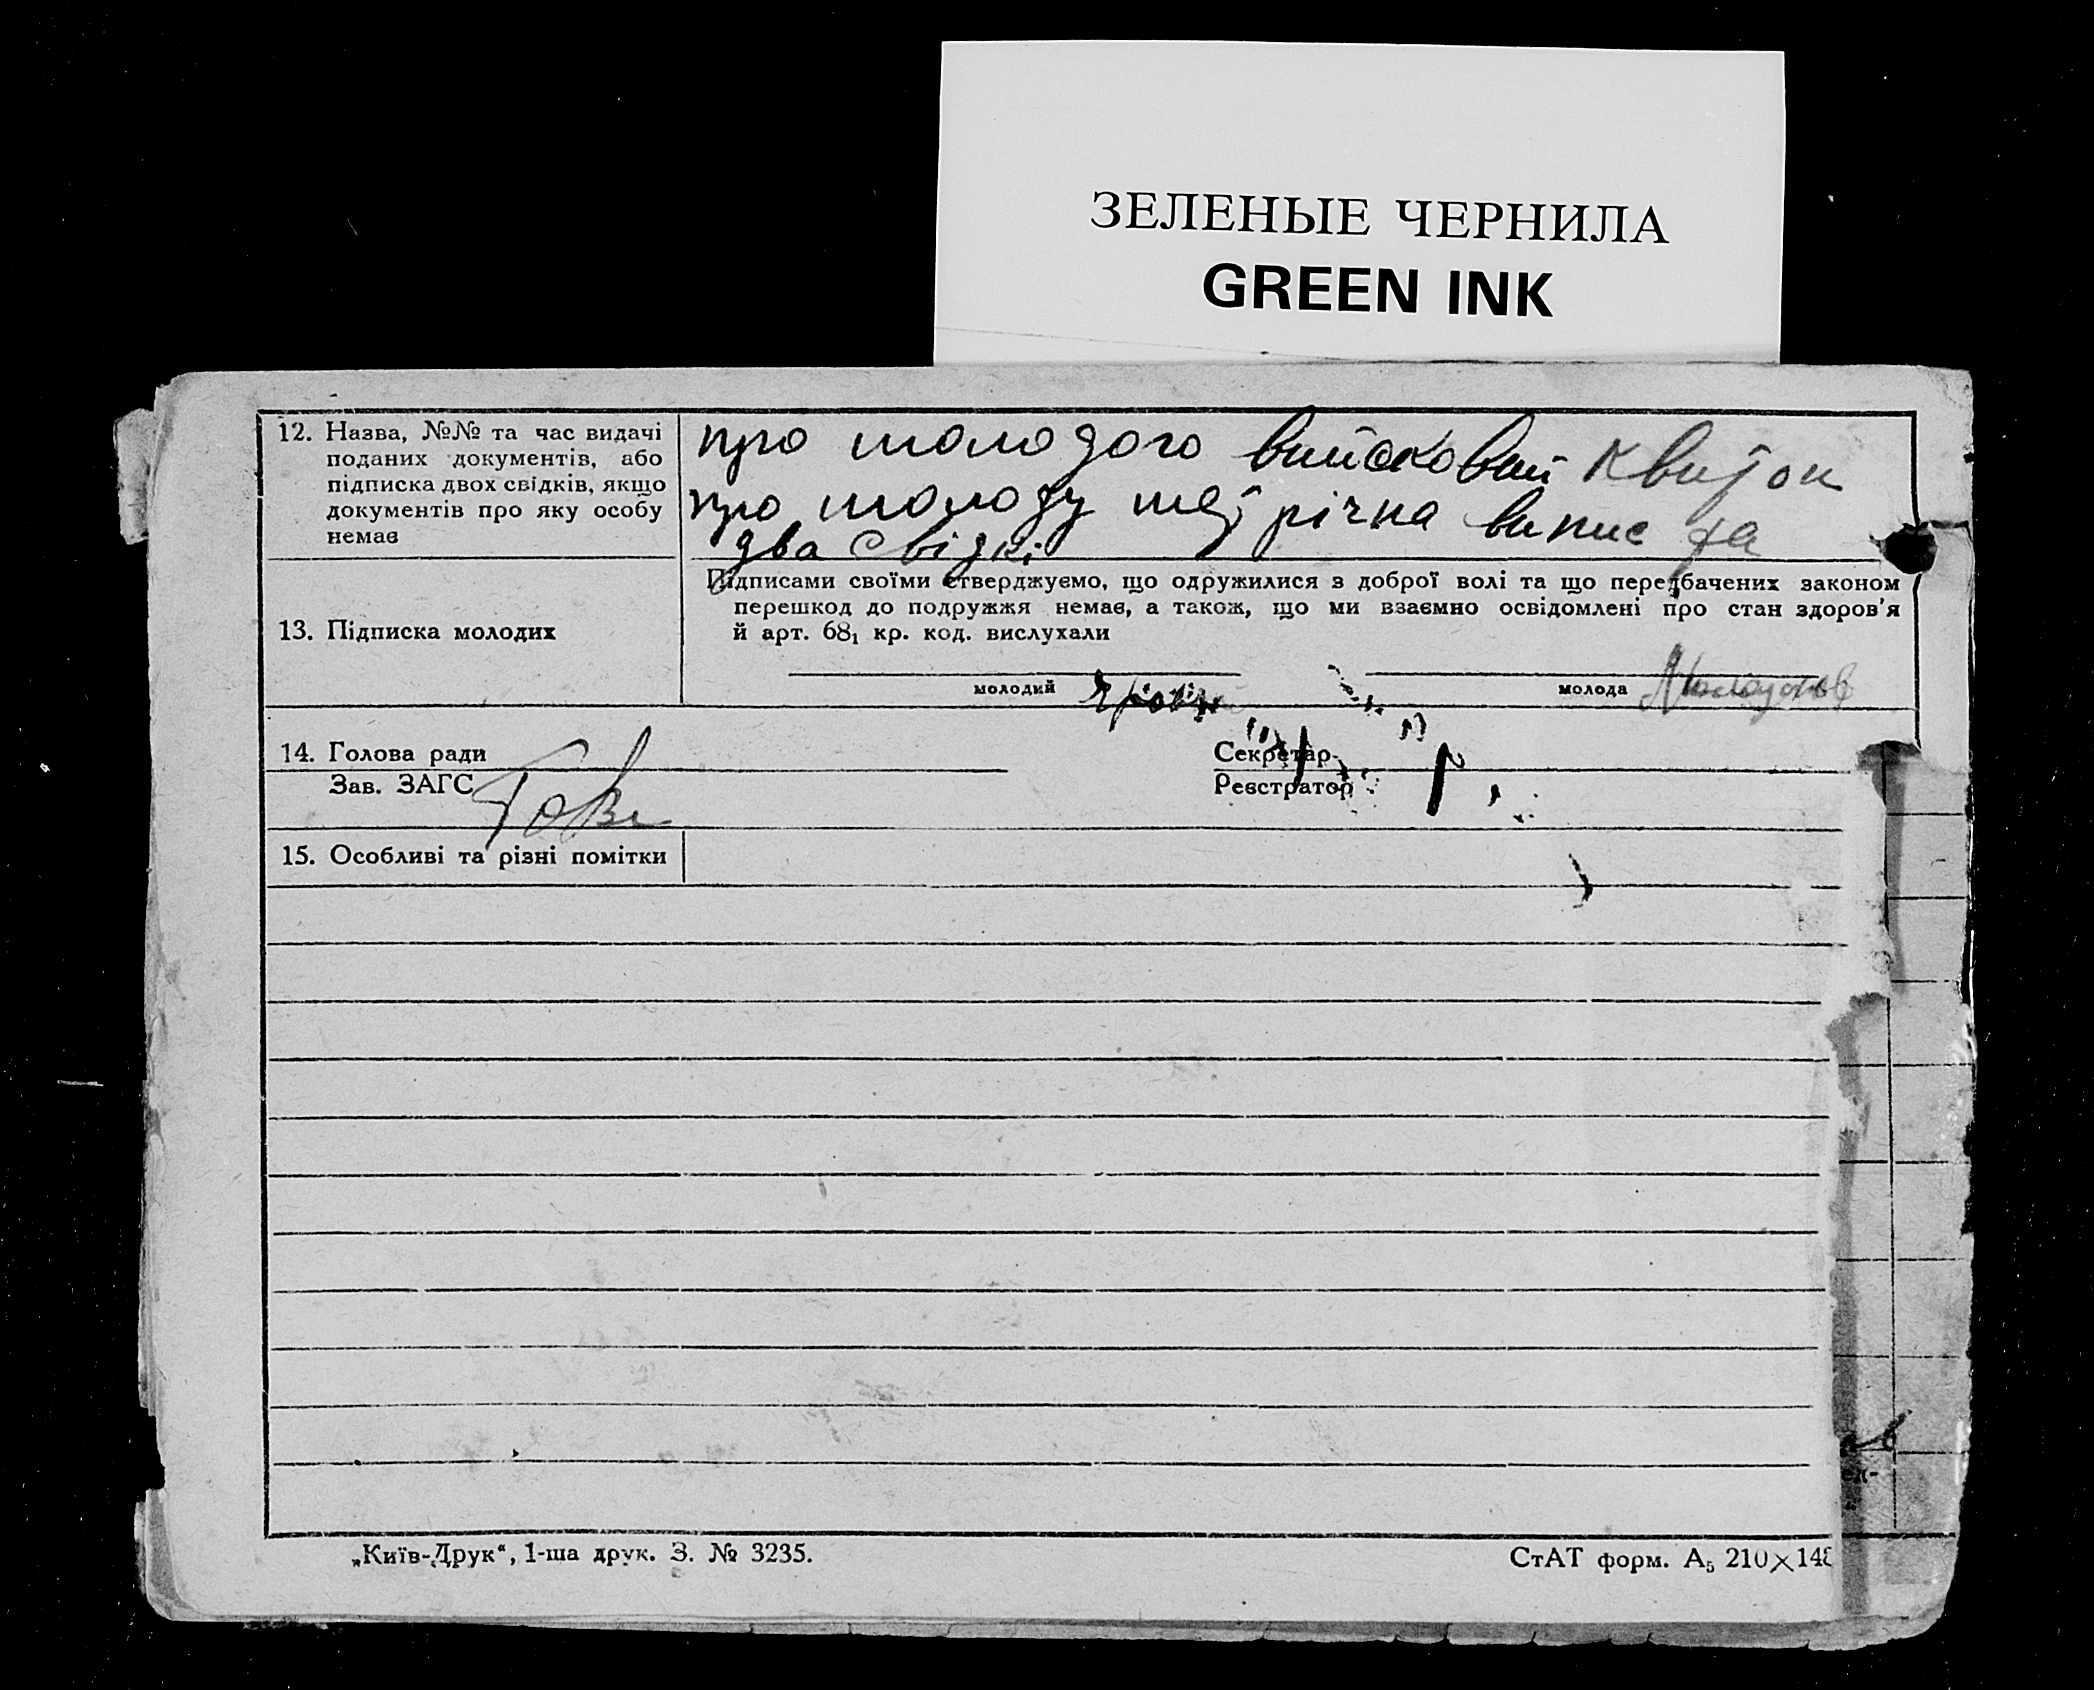 ЗЕЛЕНЫЕ ЧЕРНИЛА
GREEN INK
12. Назва, №№ та час видачі
поданих документів, або
підписка двох свідків, якщо
документів про яку особу
немає
про молодого вийсковий квиток
про молоду метрічна випис та
два свідкі
13. Підписка молодих
Підписами своїми стверджуємо, що одружилися з доброї волі та що передбачених законом
перешкод до подружжя немає, а також, що ми взаємно освідомлені про стан здоров'я
й арт. 68₁ кр. код. вислухали
молодий
молода
14. Голова ради
Секретар
Зав. ЗАГС
Реєстратор
15. Особливі та різні помітки
„Київ-Друк“, 1-ша друк. З. № 3235.
СтАТ форм. А₅ 210×148